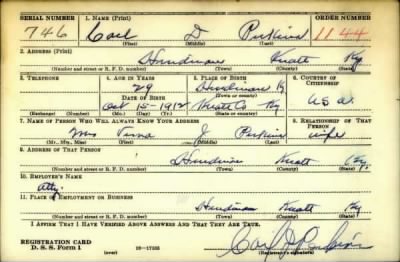 SERIAL NUMBER 1. NAME (Print) ORDER NUMBER
746 Carl D Perkins 1144
(First) (Middle) (Last)
2. ADDRESS (Print)
Hindman Knott Ky
(Number and street or R. F. D. number) (Town) (County) (State)
3. TELEPHONE 4. AGE IN YEARS 5. PLACE OF BIRTH 6. COUNTRY OF CITIZENSHIP
29 Hindman Ky
DATE OF BIRTH
Oct 15-1912 Knott Co Ky U.S.A.
(Exchange) (Number) (Mo.) (Day) (Yr.) (Town or county) (State or country)
7. NAME OF PERSON WHO WILL ALWAYS KNOW YOUR ADDRESS 8. RELATIONSHIP OF THAT PERSON
Mrs Verna J Perkins wife
(Mr., Mrs., Miss) (First) (Middle) (Last)
9. ADDRESS OF THAT PERSON
Hindman Knott Ky.
(Number and street or R. F. D. number) (Town) (County) (State)
10. EMPLOYER'S NAME
Atty.
11. PLACE OF EMPLOYMENT OR BUSINESS
Hindman Knott Ky
(Number and street or R. F. D. number) (Town) (County) (State)
I AFFIRM THAT I HAVE VERIFIED ABOVE ANSWERS AND THAT THEY ARE TRUE.
REGISTRATION CARD
D. S. S. Form 1 (over) Carl D Perkins
(Registrant's signature)